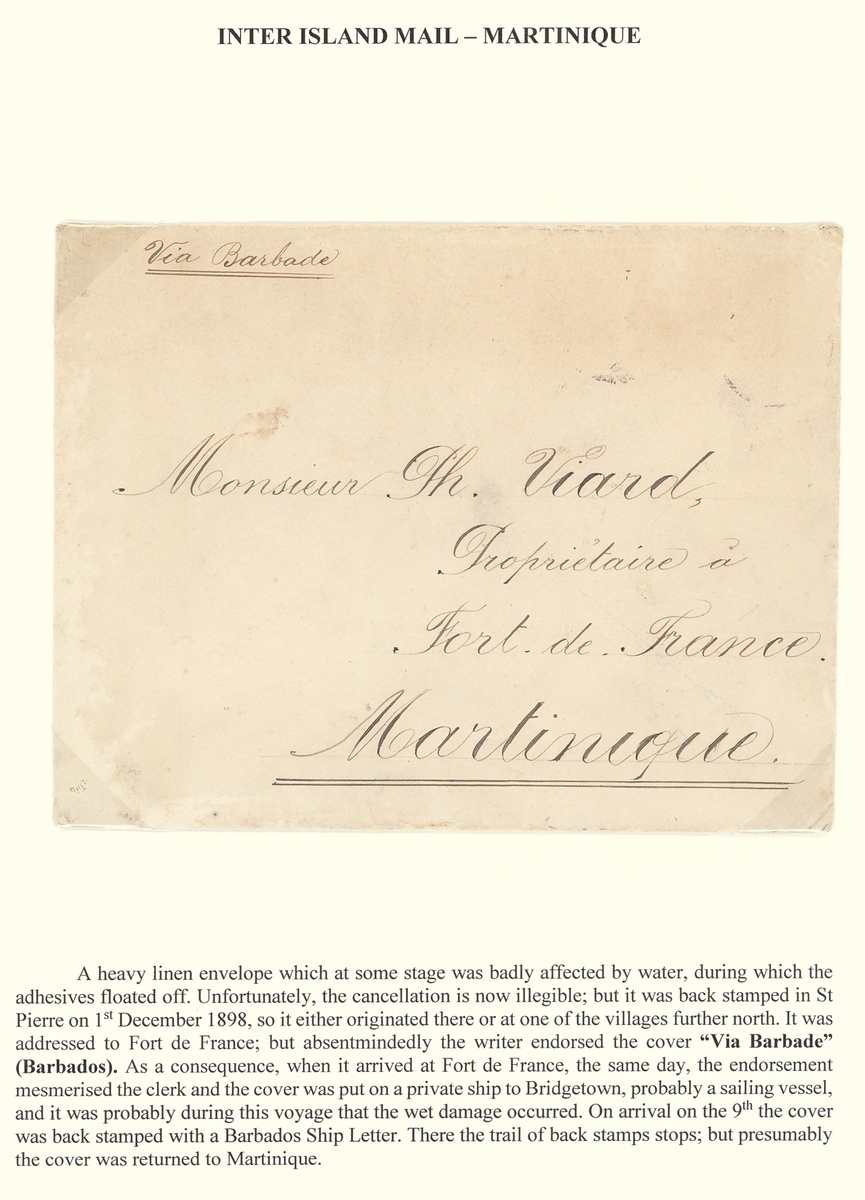 INTER ISLAND MAIL – MARTINIQUE
Via Barbade
Monsieur Ph. Viard,
Propriétaire à
Fort. de. France.
Martinique.
A heavy linen envelope which at some stage was badly affected by water, during which the
adhesives floated off. Unfortunately, the cancellation is now illegible; but it was back stamped in St
Pierre on 1st December 1898, so it either originated there or at one of the villages further north. It was
addressed to Fort de France; but absentmindedly the writer endorsed the cover “Via Barbade”
(Barbados). As a consequence, when it arrived at Fort de France, the same day, the endorsement
mesmerised the clerk and the cover was put on a private ship to Bridgetown, probably a sailing vessel,
and it was probably during this voyage that the wet damage occurred. On arrival on the 9th the cover
was back stamped with a Barbados Ship Letter. There the trail of back stamps stops; but presumably
the cover was returned to Martinique.